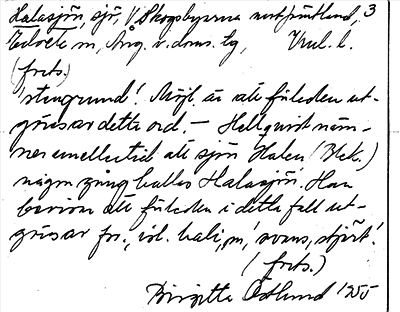 Halasjön, sjö, V. Skogsbyarna 3
m, Ång. v. doms. lg, Vrml. l.
(forts.)
'stengrund'. Möjl. är att förleden ut-
göres av detta ord. – Hellquist näm-
ner emellertid att sjön Halen (Blek.)
någon gång kallas Halasjön. Han
att förleden i detta fall ut-
göres av fsv., isl. hali, m, 'svans, stjärt'.
(forts.)
Birgitta Östlund 1955